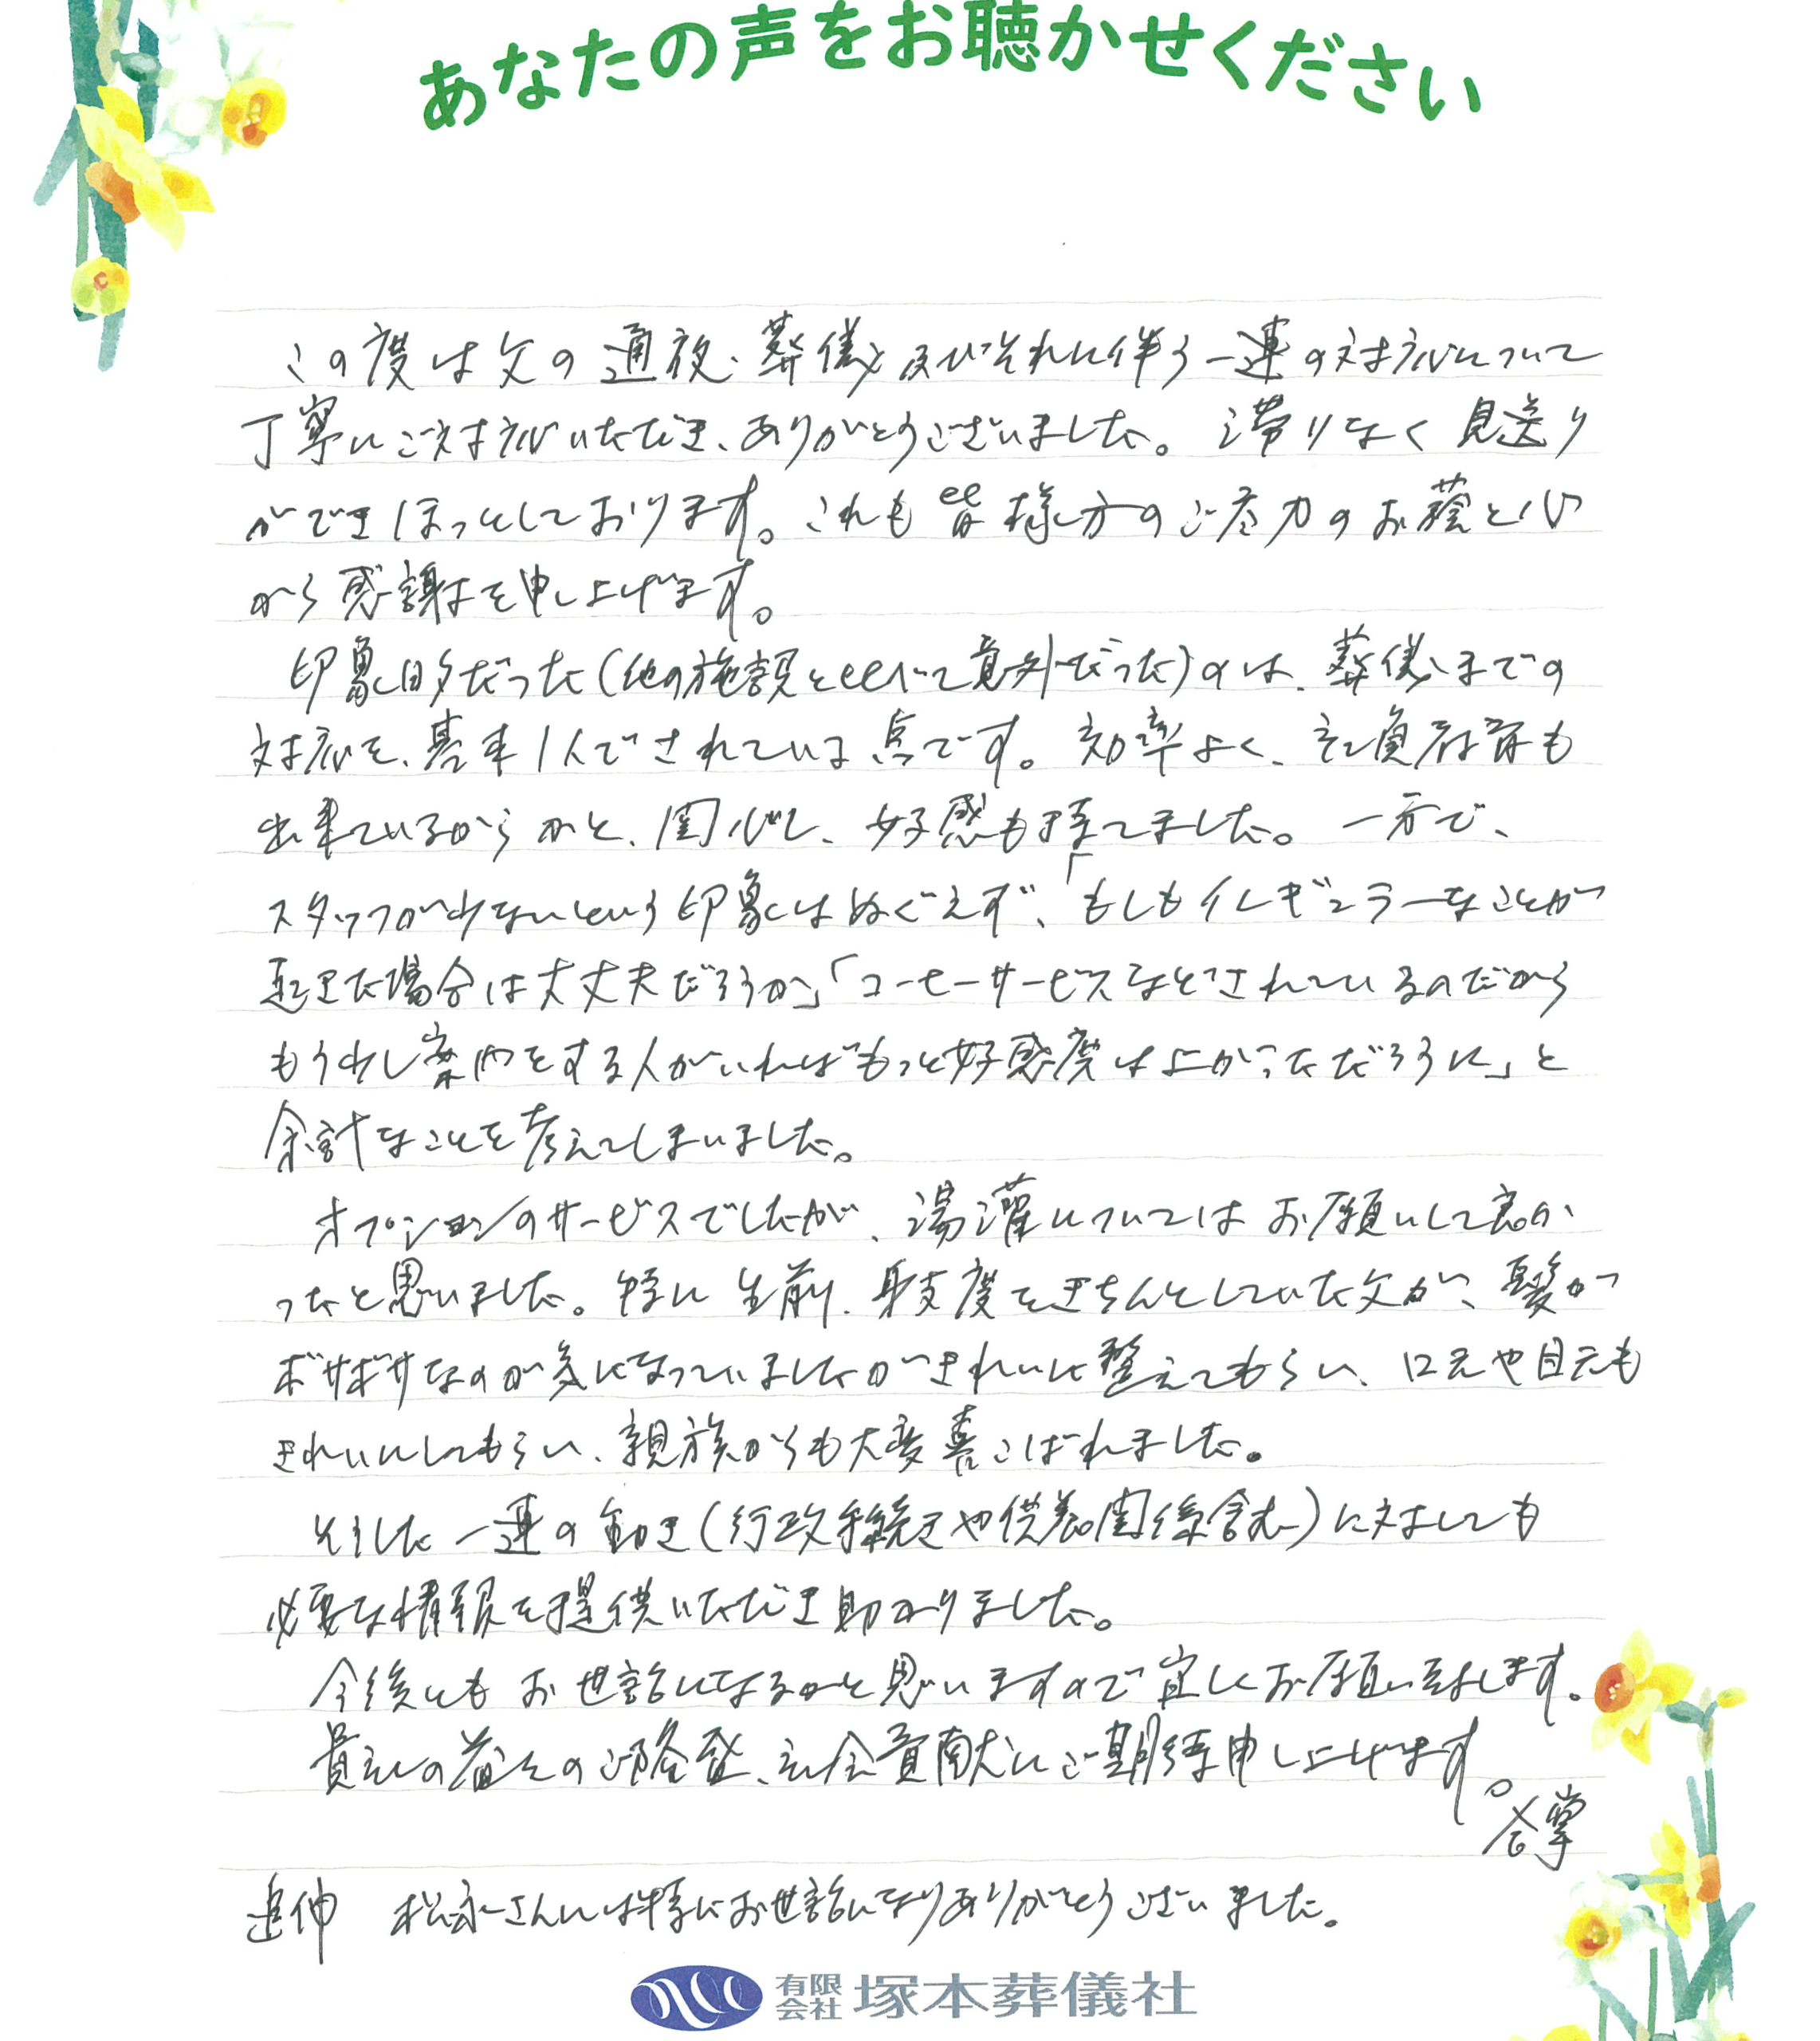 あなたの声をお聴かせください
この度は父の通夜、葬儀及びそれに伴う一連の対応について
丁寧にご対応いただき、ありがとうございました。滞りなく見送り
ができほっとしております。これも皆様方のご尽力のお蔭と心
から感謝を申し上げます。
印象的だった(他の施設と比べて意外だった)のは、葬儀までの
対応を、基本1人でされている点です。効率よく、社員教育も
出来ているからかと、関心し、好感も持てました。一方で、
スタッフが少ないという印象はぬぐえず、「もしもイレギュラーなことが
起きた場合は大丈夫だろうか」「コーヒーサービスなどされているのだから
もう少し案内をする人がいればもっと好感度は上がっただろうに」と
余計なことを考えてしまいました。
オプションのサービスでしたが、湯灌についてはお願いして良か
ったと思いました。特に生前、身支度をきちんとしていた父が、髪が
ボサボサなのが気になっていましたがきれいに整えてもらい、口元や目元も
きれいにしてもらい、親族からも大変喜こばれました。
そうした一連の動き(行政手続きや供養関係含む)に対しても
必要な情報を提供いただき助かりました。
今後ともお世話になるかと思いますので宜しくお願い致します。
貴社の益々のご隆盛、社会貢献にご期待申し上げます。
合掌
追伸 松永さんには特にお世話になりありがとうございました。
有限会社 塚本葬儀社